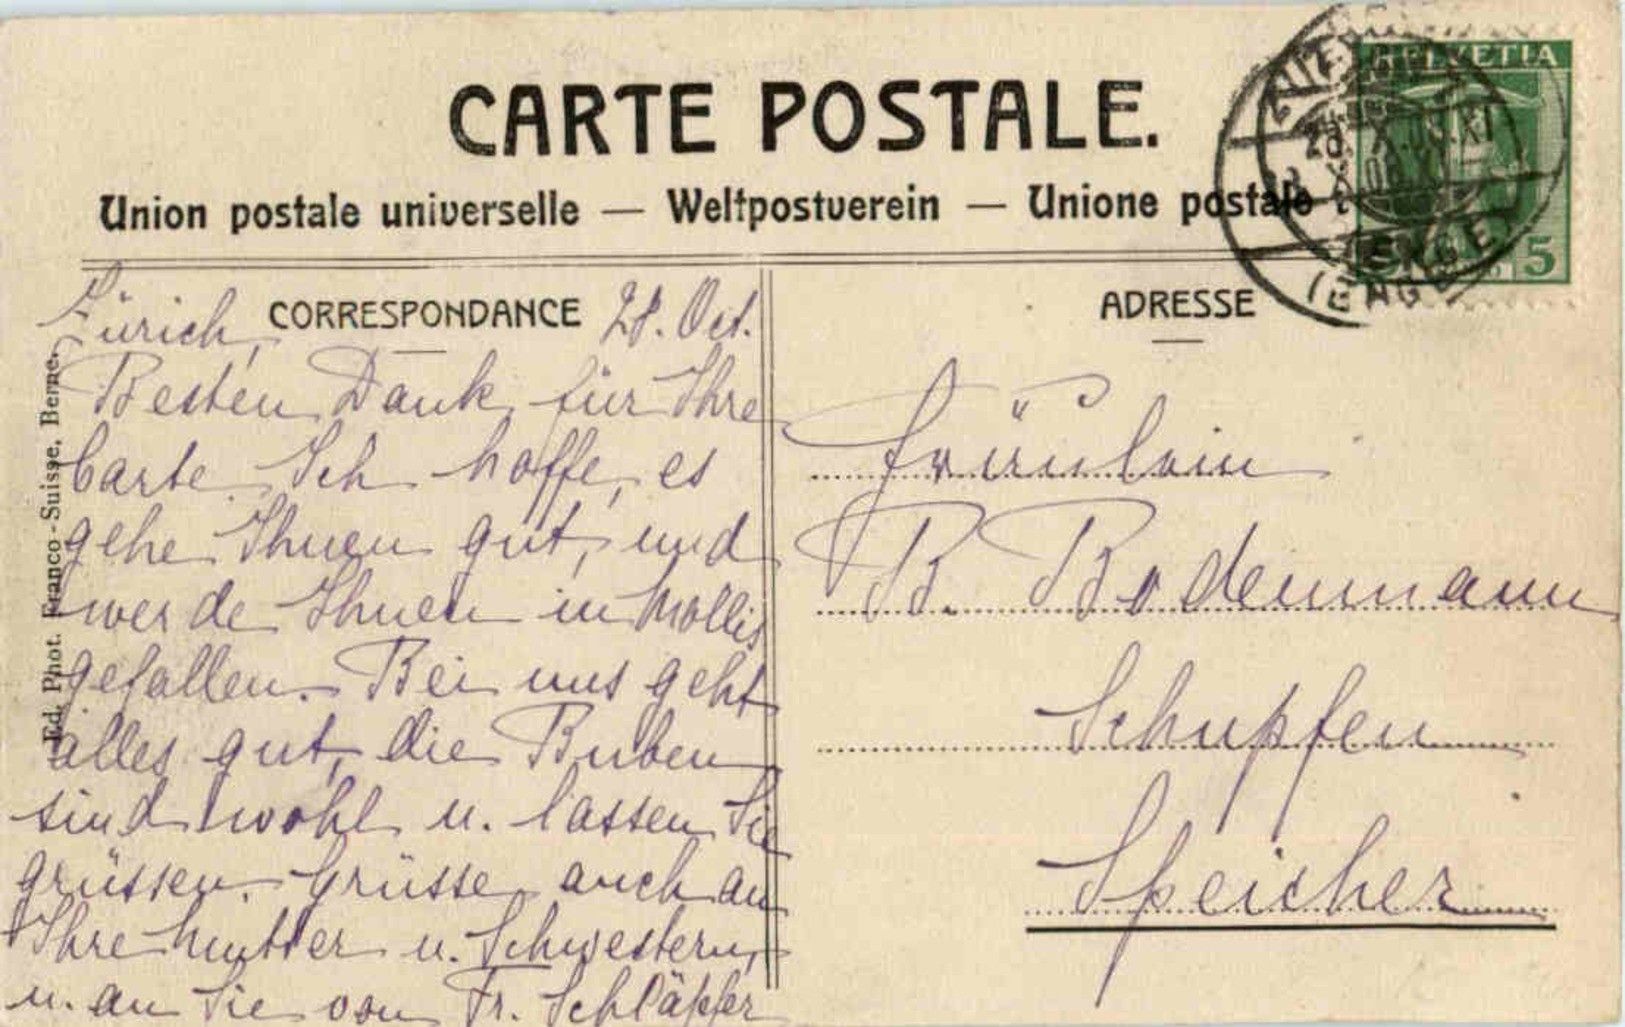 CARTE POSTALE.
Union postale universelle — Weltpostverein — Unione postale
HELVETIA
5
(ENGE)
CORRESPONDANCE
Zürich, 28. Oct.
Besten Dank für Ihre
Carte. Ich hoffe, es
gehe Ihnen gut, und
werde Ihnen in Mollis
gefallen. Bei uns geht
alles gut, die Buben
sind wohl u. lassen Sie
grüssen. Grüsse auch an
Ihre Mutter u. Schwestern,
u. an Sie von Fr. Schläpfer
ADRESSE
Fräulein
B. Bodenmann
Schupfen
Speicher
Ed. Phot. Franco-Suisse, Berne.